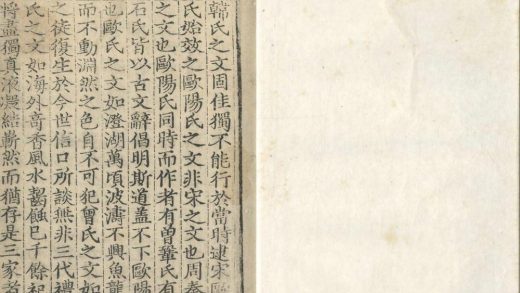 韓氏之文固佳獨不能行於當時逮宋歐
氏始效之歐陽氏之文非宋之文也周秦
之文也歐陽氏同時而作者有曾鞏氏有
石氏皆以古文辭倡明斯道盖不下歐陽
也歐氏之文如澄湖萬頃波濤不興魚龍
而不動淵然之色自不可犯曾氏之文如
之徒復生於今世信口所談無非三代禮
氏之文如海外竒香風水齧蝕已千餘祀
將盡獨真液凝結嶄然而猶存是三家者